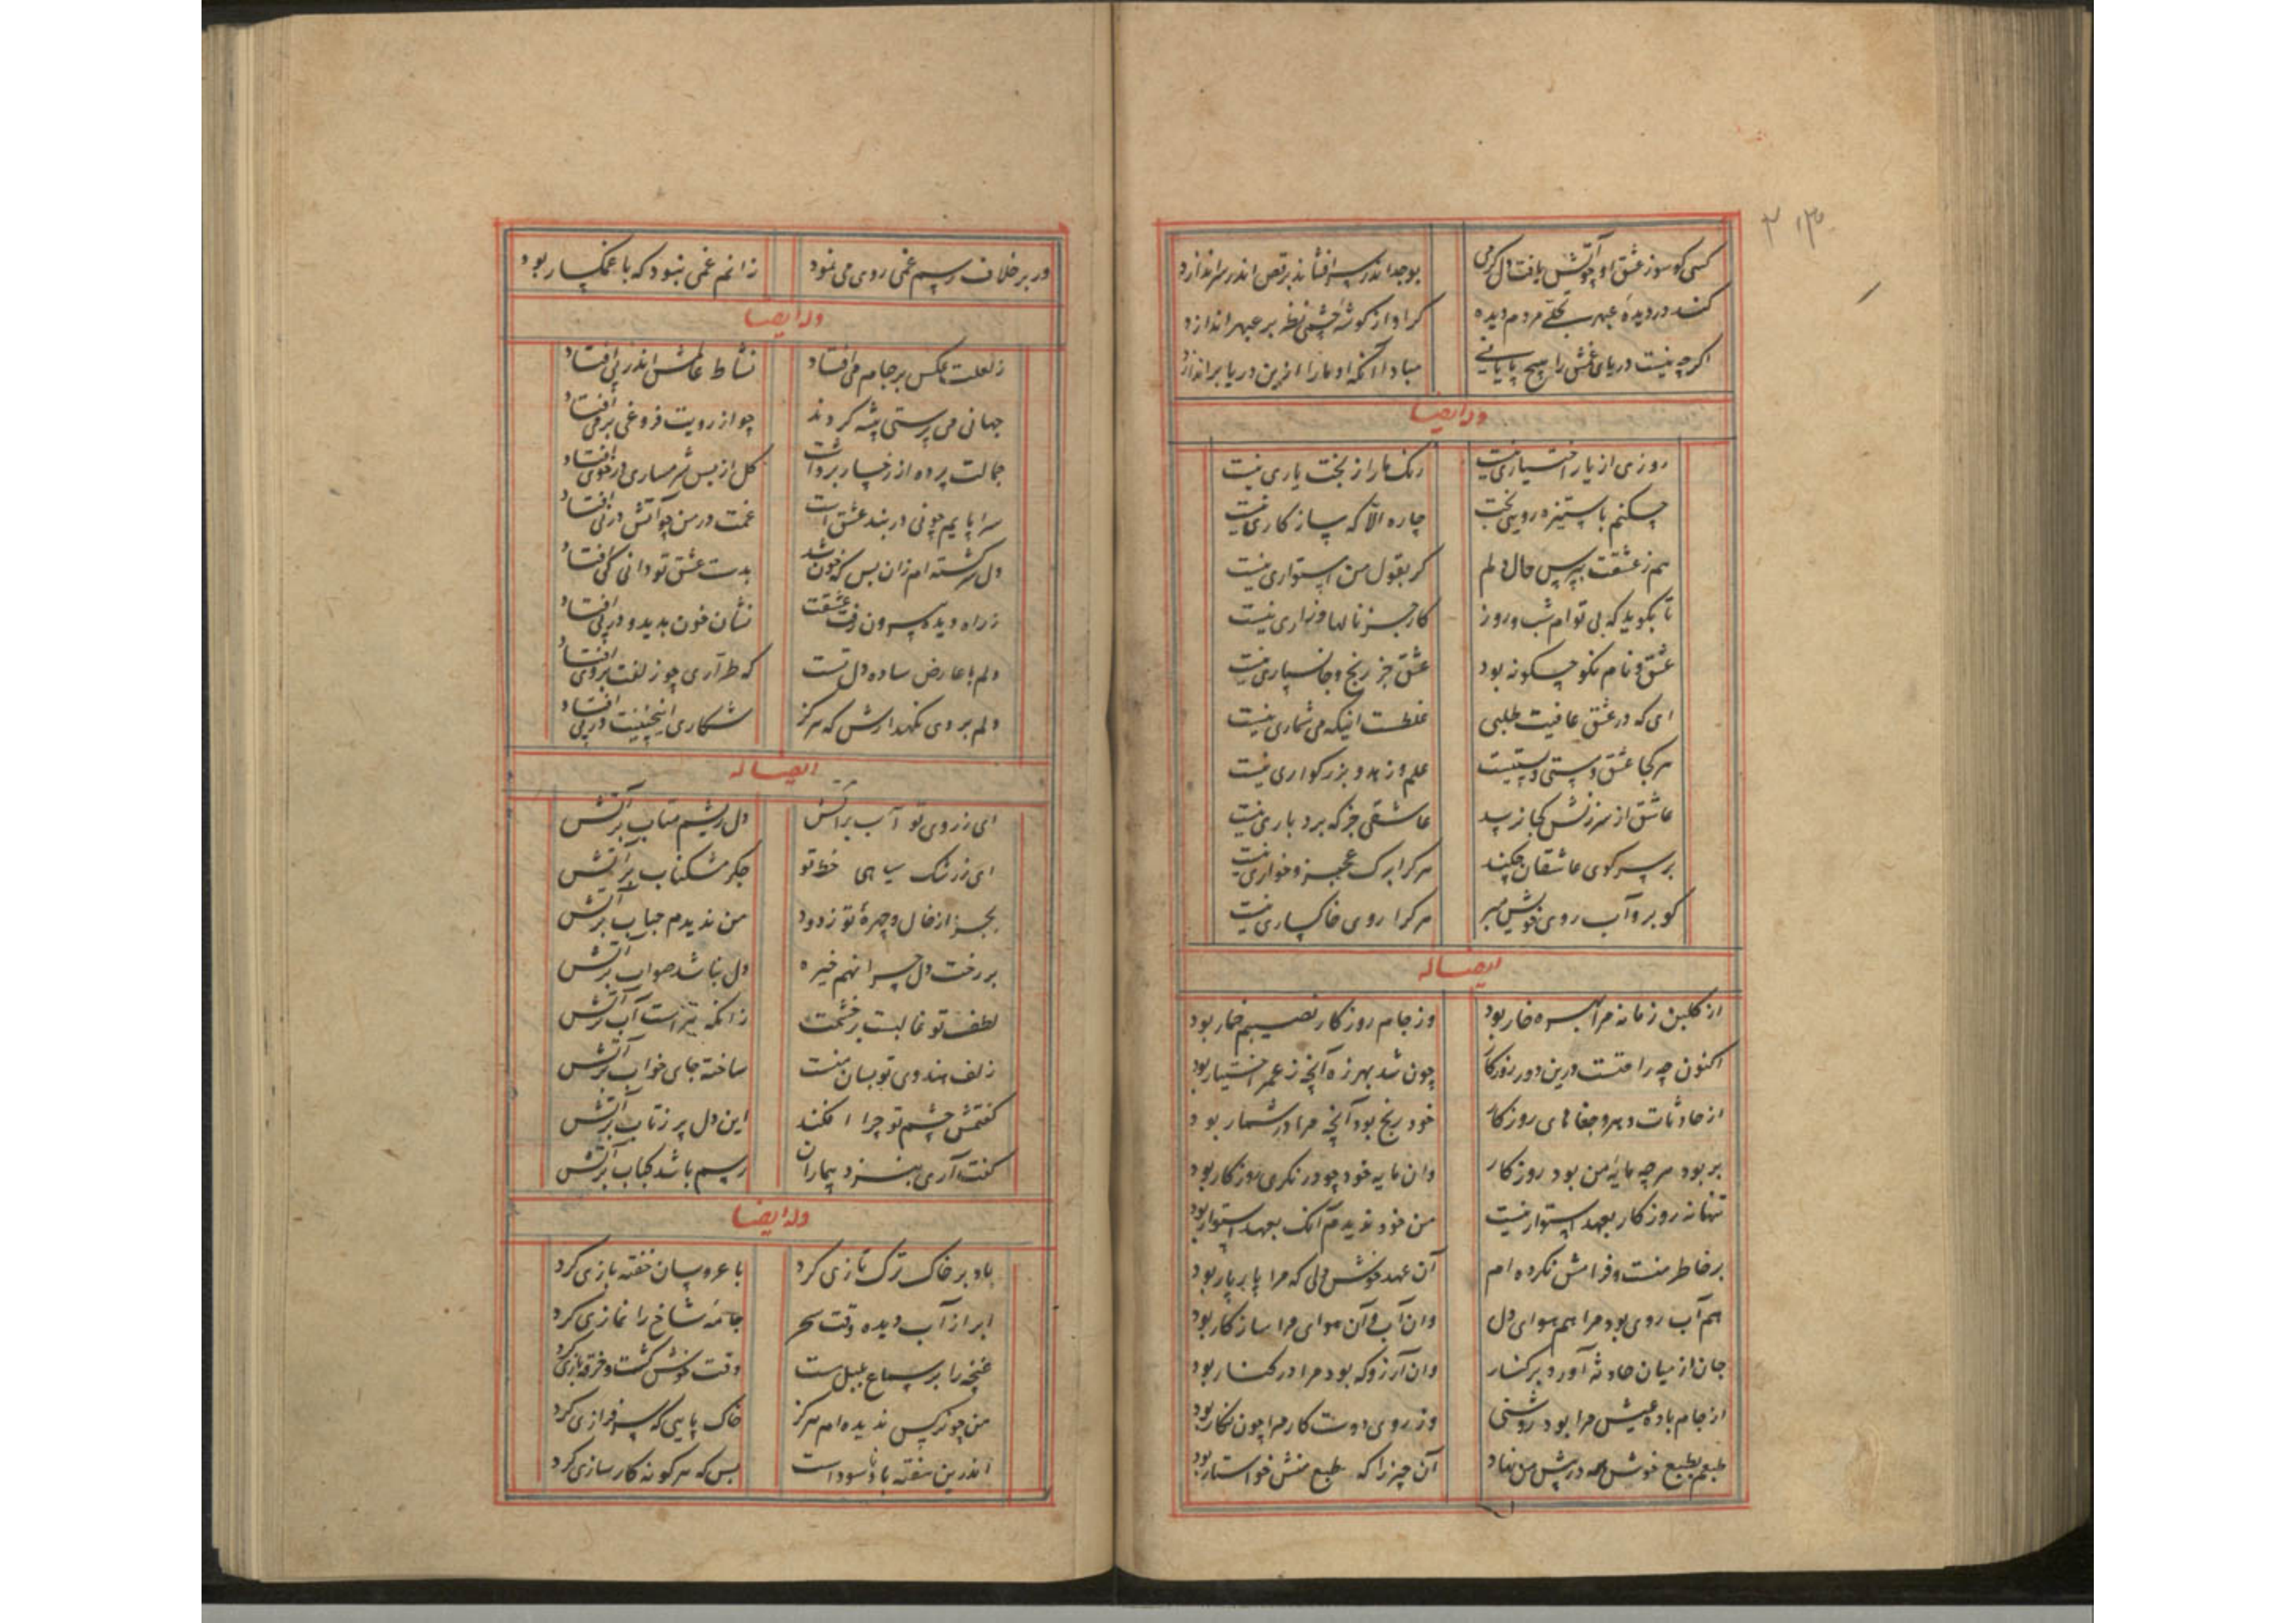 ۳۱۳
کسی کو سوز عشق او چو آتش یافت دل گرمی
بوجد اندر سر افشاند برقص اندر سر اندازد
کند در دیده عبهر بجای مردم دیده
کر او از کوشه چشمی نظر بر عبهر اندازد
اکرچه نیست دریای غمش را هیچ پایانی
مبادا آنکه او ما را ازین دریا بر اندازد
وله ایضا
روزی از یار اختیاری نیست
رنک ما را ز بخت یاری نیست
چکنم با ستیزه رویی بخت
چاره الا که سازکاری نیست
هم ز عشقت بپرس حال دلم
کر بقول من استواری نیست
تا بکوید که بی توام شب و روز
کار جز نالها و زاری نیست
عشق و نام نکو چکونه بود
عشق جز رنج و جانسپاری نیست
ای که در عشق عافیت طلبی
غلطست اینکه می شماری نیست
هر کجا عشق و مستی و پستیست
علم و زهد و بزرکواری نیست
عاشق از سرزنش کجا ترسد
عاشقی جز که بردباری نیست
بر سر کوی عاشقان چکند
هر کرا برک عجز و خواری نیست
کو برو آب روی خویش مبر
هر کرا روی خاکساری نیست
ایضا له
از کلبن زمانه مرا بهره خار بود
وز جام روزکار نصیبم خمار بود
اکنون چه راحتست درین دور روزکار
چون شد بهرزه آنچه ز عمر اختیار بود
از حادثات دهر و جفاهای روزکار
خود رنج بود آنچه مرا در شمار بود
بربود هر چه مایه من بود روزکار
وان مایه خود چو در نکری روزکار بود
تنها نه روزکار بعهد استوار نیست
من خود ندیدم آنک بعهد استوار بود
بر خاطر منست و فرامش نکرده ام
آن عهد خوش دلی که مرا یار یار بود
هم آب روی بود مرا هم هوای دل
وان آب و آن هوای مرا سازکار بود
جان از میان حادثه آورد بر کنار
وان آرزو که بود مرا در کنار بود
از جام باده عیش مرا بود روشنی
وز روی دوست کار مرا چون نکار بود
طبعم بطبع خوش همه در پیش من نهاد
آن چیز را که طبع منش خواستار بود
ور بر خلاف رسم غمی روی می نمود
زانم غمی نبود که با غمکسار بود
وله ایضا
ز لعلت عکس بر جام می افتاد
نشاط عالمش اندر پی افتاد
جهانی می پرستی پیشه کردند
چو از رویت فروغی بر می افتاد
جمالت پرده از رخسار برداشت
کل از بس شرمساری در خوی افتاد
سراپایم چو نی در بند عشق است
غمت در من چو آتش در نی افتاد
دل سرکشته ام زان پس که خون شد
بدست عشق تو دانی کی افتاد
ز راه دیده بیرون رفت عشقت
نشان خون بدید و در پی افتاد
دلم با عارض ساده دل تست
که طراری چو زلفت بر وی افتاد
دلم بردی نکهدارش که هرکز
شکاری اینچنینت در پی افتاد
ایضا له
ای ز روی تو آب بر آتش
دل ریشم متاب بر آتش
ای ز رشک سیاهی خط تو
جکر مشکناب بر آتش
بجز از خال و چهره تو ز دود
من ندیدم حجاب بر آتش
بر رخت دل چرا نهم خیره
دل نباشد صواب بر آتش
لطف تو غالبست بر خشمت
زانکه تیزاست آب بر آتش
زلف هندوی تو بسان منست
ساخته جای خواب بر آتش
کفتمش چشم تو چرا افکند
این دل پر ز تاب بر آتش
کفت آری بنزد بیماران
رسم باشد کباب بر آتش
وله ایضا
باد بر خاک ترک تازی کرد
با عروسان خفته بازی کرد
ابر از آب دیده وقت سحر
جامه شاخ را نمازی کرد
غنچه را بر سماع بلبل مست
وقت خوش کشت و خرقه بازی کرد
من چو نرکس ندیده ام هرکز
خاک پایی که سرفرازی کرد
اندرین هفته باد ناسوداست
بس که هر کونه کارسازی کرد